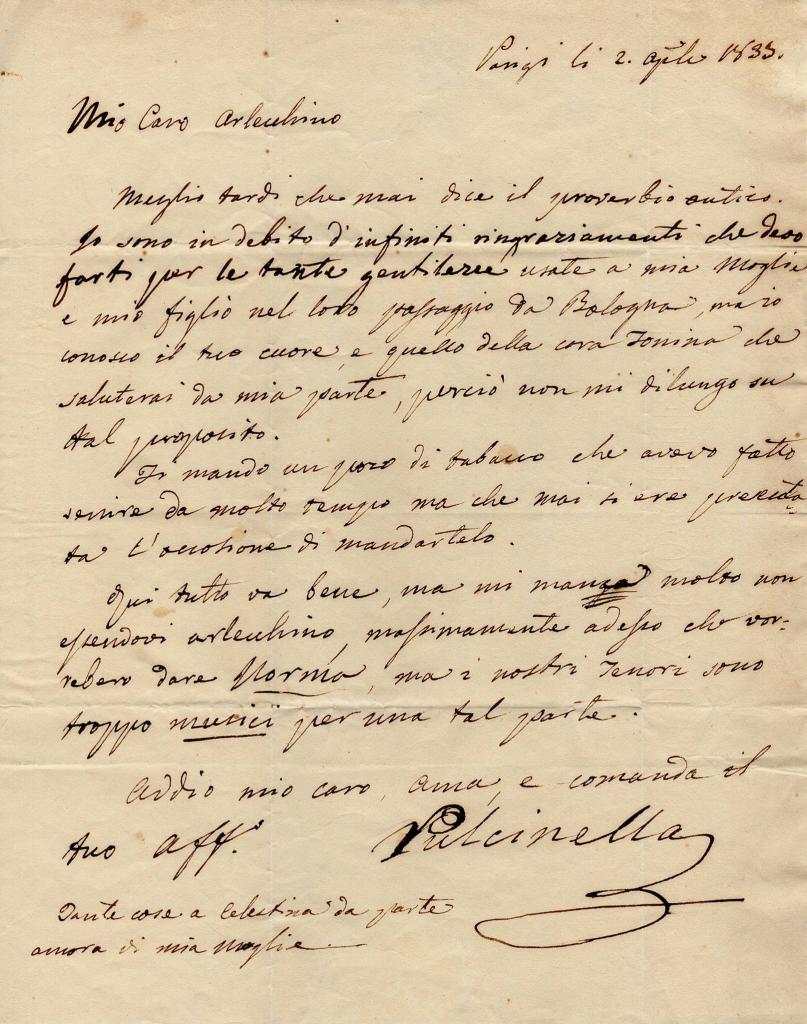 Parigi li 2. aprile 1833.
Mio Caro Arlecchino
Meglio tardi che mai dice il proverbio antico.
Io sono in debito d'infiniti ringraziamenti che devo
farti per le tante gentilezze usate a mia Moglie
e mio figlio nel loro passaggio da Bologna, ma io
conosco il tuo cuore, e quello della cara Tonina che
saluterai da mia parte, perciò non mi dilungo su
tal proposito.
Ti mando un poco di tabacco che avevo fatto
venire da molto tempo ma che mai si era presenta-
ta l'occasione di mandartelo.
Qui tutto va bene, ma mi manca molto non
essendovi arlecchino, massimamente adesso che vor-
rebero dare Norma, ma i nostri Tenori sono
troppo musici per una tal parte.
Addio mio caro, ama, e comanda il
tuo aff.o Pulcinella
Tante cose a Celestina da parte
ancora di mia moglie